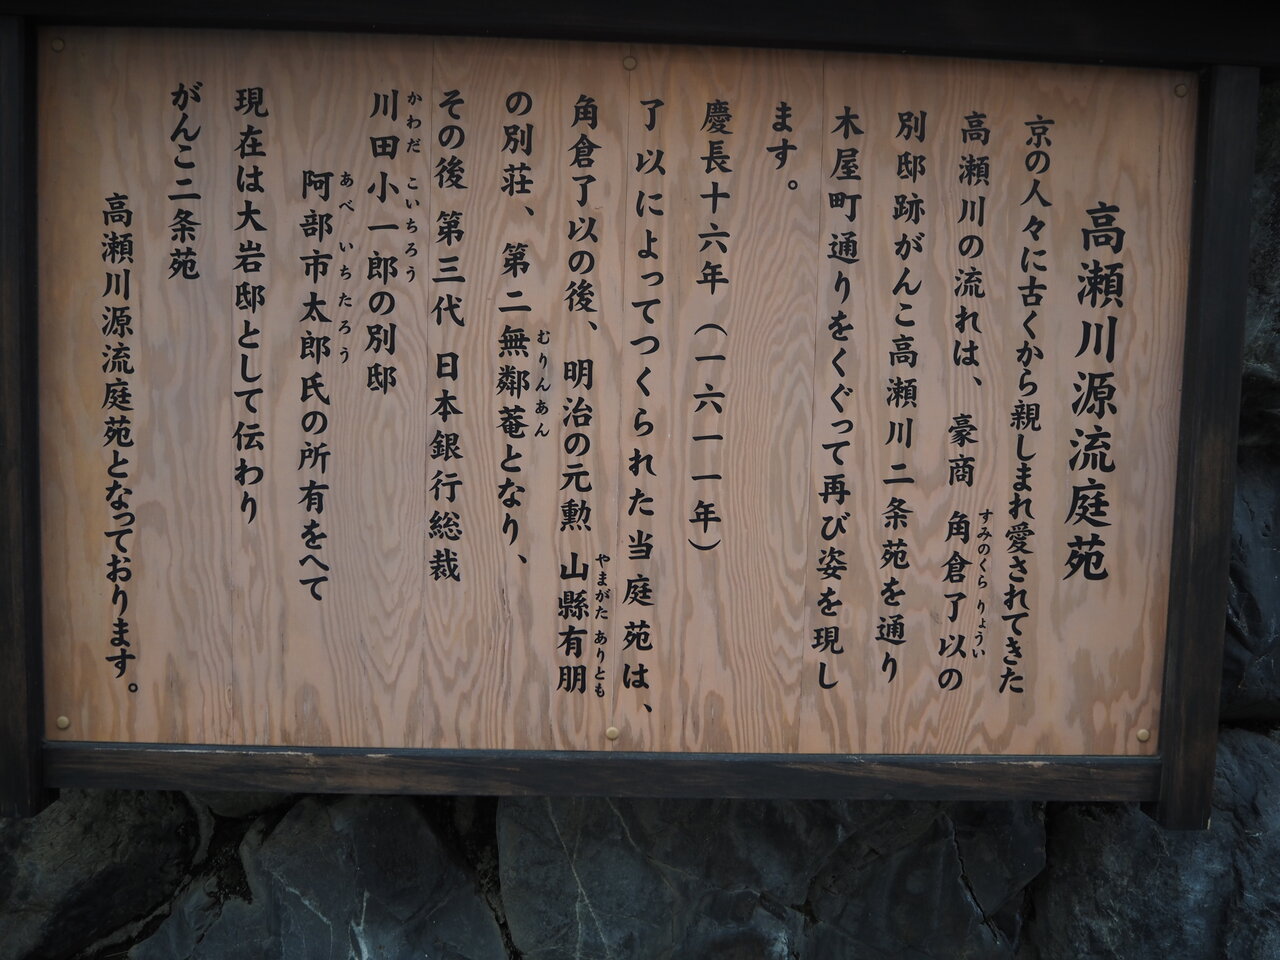 高瀬川源流庭苑
京の人々に古くから親しまれ愛されてきた
高瀬川の流れは、豪商 角倉了以の
すみのくら りょうい
別邸跡がんこ高瀬川二条苑を通り
木屋町通りをくぐって再び姿を現し
ます。
慶長十六年(一六一一年)
了以によってつくられた当庭苑は、
角倉了以の後、明治の元勲 山縣有朋
やまがた ありとも
の別荘、第二無鄰菴となり、
むりんあん
その後 第三代 日本銀行総裁
川田小一郎の別邸
かわだ こいちろう
阿部市太郎氏の所有をへて
あべ いちたろう
現在は大岩邸として伝わり
がんこ二条苑
高瀬川源流庭苑となっております。